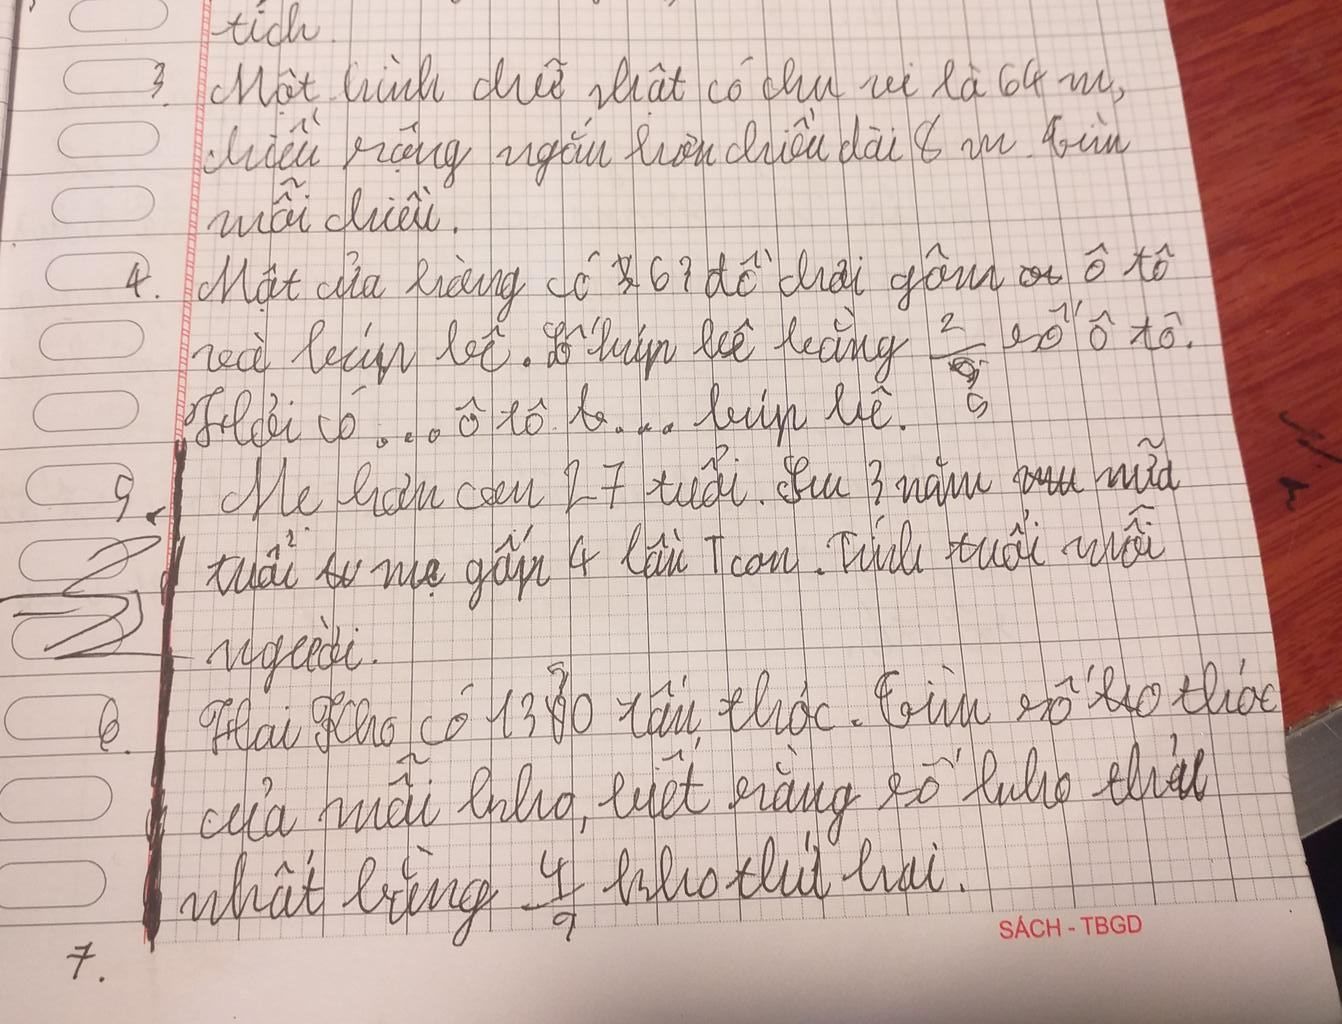 tích.
3. Một hình chữ nhật có chu vi là 64 m,
chiều rộng ngắn hơn chiều dài 8 m. Tìm
mỗi chiều.
4. Một cửa hàng có 63 đồ chơi gồm ô tô
và búp bê. Số búp bê bằng 2/5 số ô tô.
Hỏi có ... ô tô ... búp bê.
5. Mẹ hơn con 27 tuổi. Sau 3 năm nữa
tuổi mẹ gấp 4 lần T con. Tính tuổi mỗi
người.
6. Hai kho có 1350 tấn thóc. Tìm số thóc
của mỗi kho, biết rằng số kho thứ
nhất bằng 4/9 kho thứ hai.
SÁCH - TBGD
7.